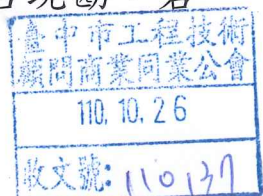 臺中市工程技術
顧問商業同業公會
110.10.26
收文號:110137